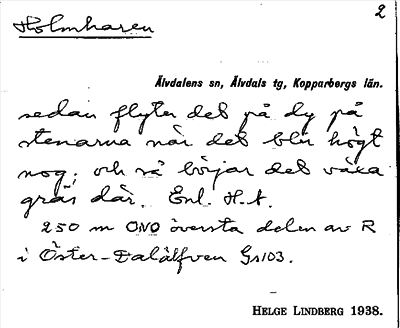 Holmharen
2
Älvdalens sn, Älvdals tg, Kopparbergs län.
sedan flyter det på dy på
stenarna när det blir högt
nog, och så börjar det växa
gräs där. Enl. H.A.
250 m ONO översta delen av R
i Öster-Dalälfven Gs103.
HELGE LINDBERG 1938.